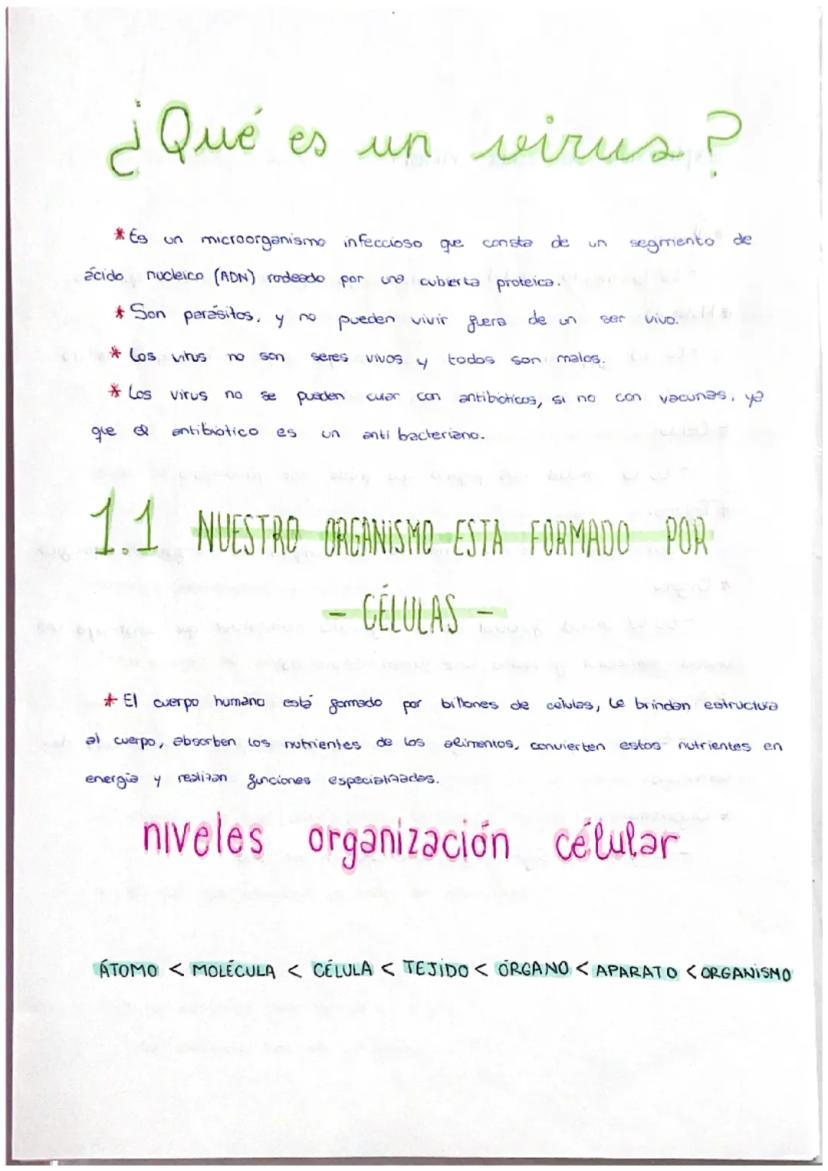 ¿Qué es un virus?
* Es un microorganismo infeccioso que consta de un segmento de
ácido nucleico (ADN) rodeado por una cubierta proteica.
* Son parásitos, y no pueden vivir fuera de un ser vivo.
* Los virus no son seres vivos y todos son malos.
* Los virus no se pueden curar con antibióticos, si no con vacunas, ya
que el antibiotico es un anti bacteriano.
1.1 NUESTRO ORGANISMO ESTA FORMADO POR
- CÉLULAS -
* El cuerpo humano está formado por billones de células, le brindan estructura
al cuerpo, absorben los nutrientes de los alimentos, convierten estos nutrientes en
energía y realizan funciones especializadas.
niveles organización célular
ÁTOMO < MOLÉCULA < CÉLULA < TEJIDO < ÓRGANO < APARATO < ORGANISMO